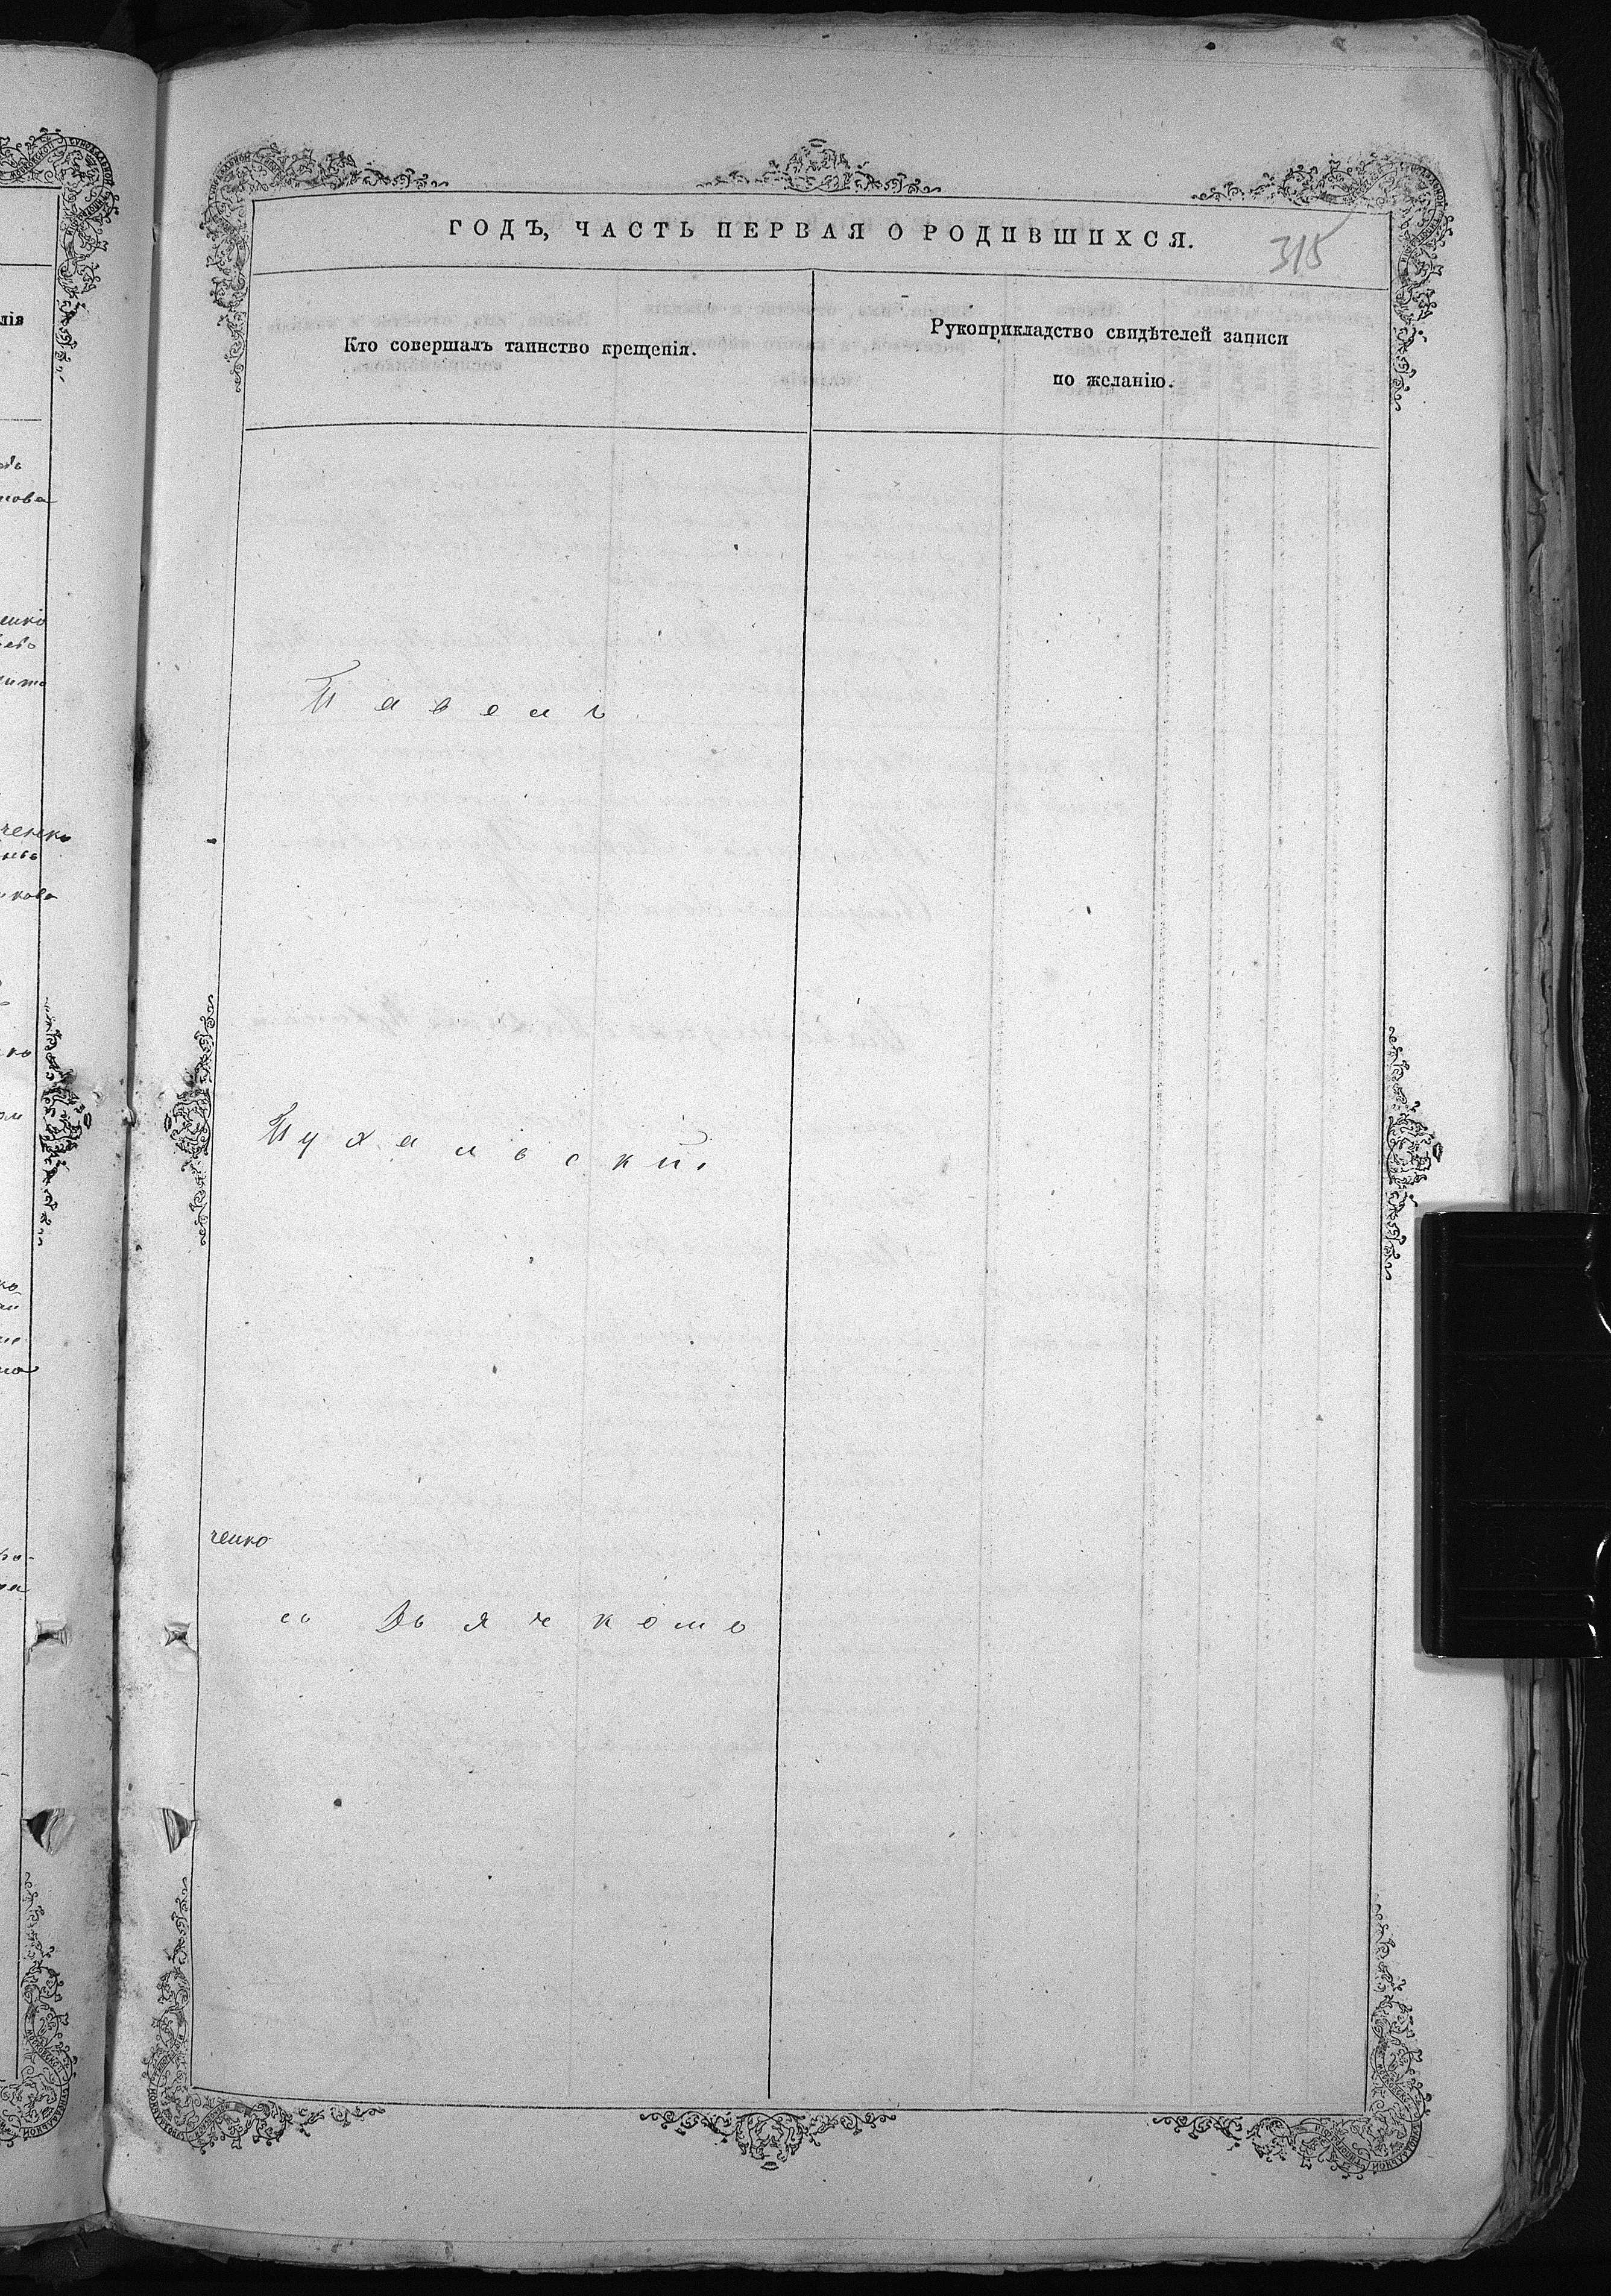 ГОДЪ, ЧАСТЬ ПЕРВАЯ О РОДИВШИХСЯ.
315
Кто совершалъ таинство крещенія.
Рукоприкладство свидѣтелей записи
по желанію.
Павелъ
Пухальскій
ченко
съ Дьячкомъ